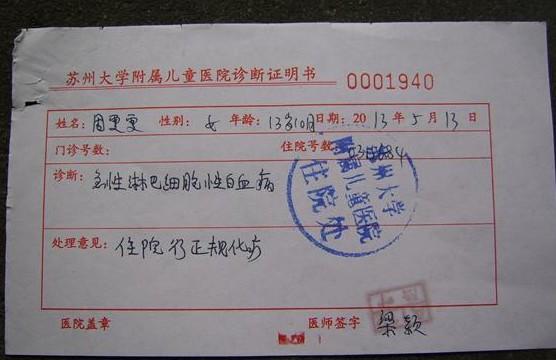 苏州大学附属儿童医院诊断证明书 0001940
姓名：周雯雯 性别：女 年龄：13岁10月 日期：2013年5月13日
门诊号数： 住院号数
诊断：急性淋巴细胞性白血病
处理意见：住院行正规化疗
苏州大学
附属儿童医院
住院处
医院盖章 医师签字 梁颖